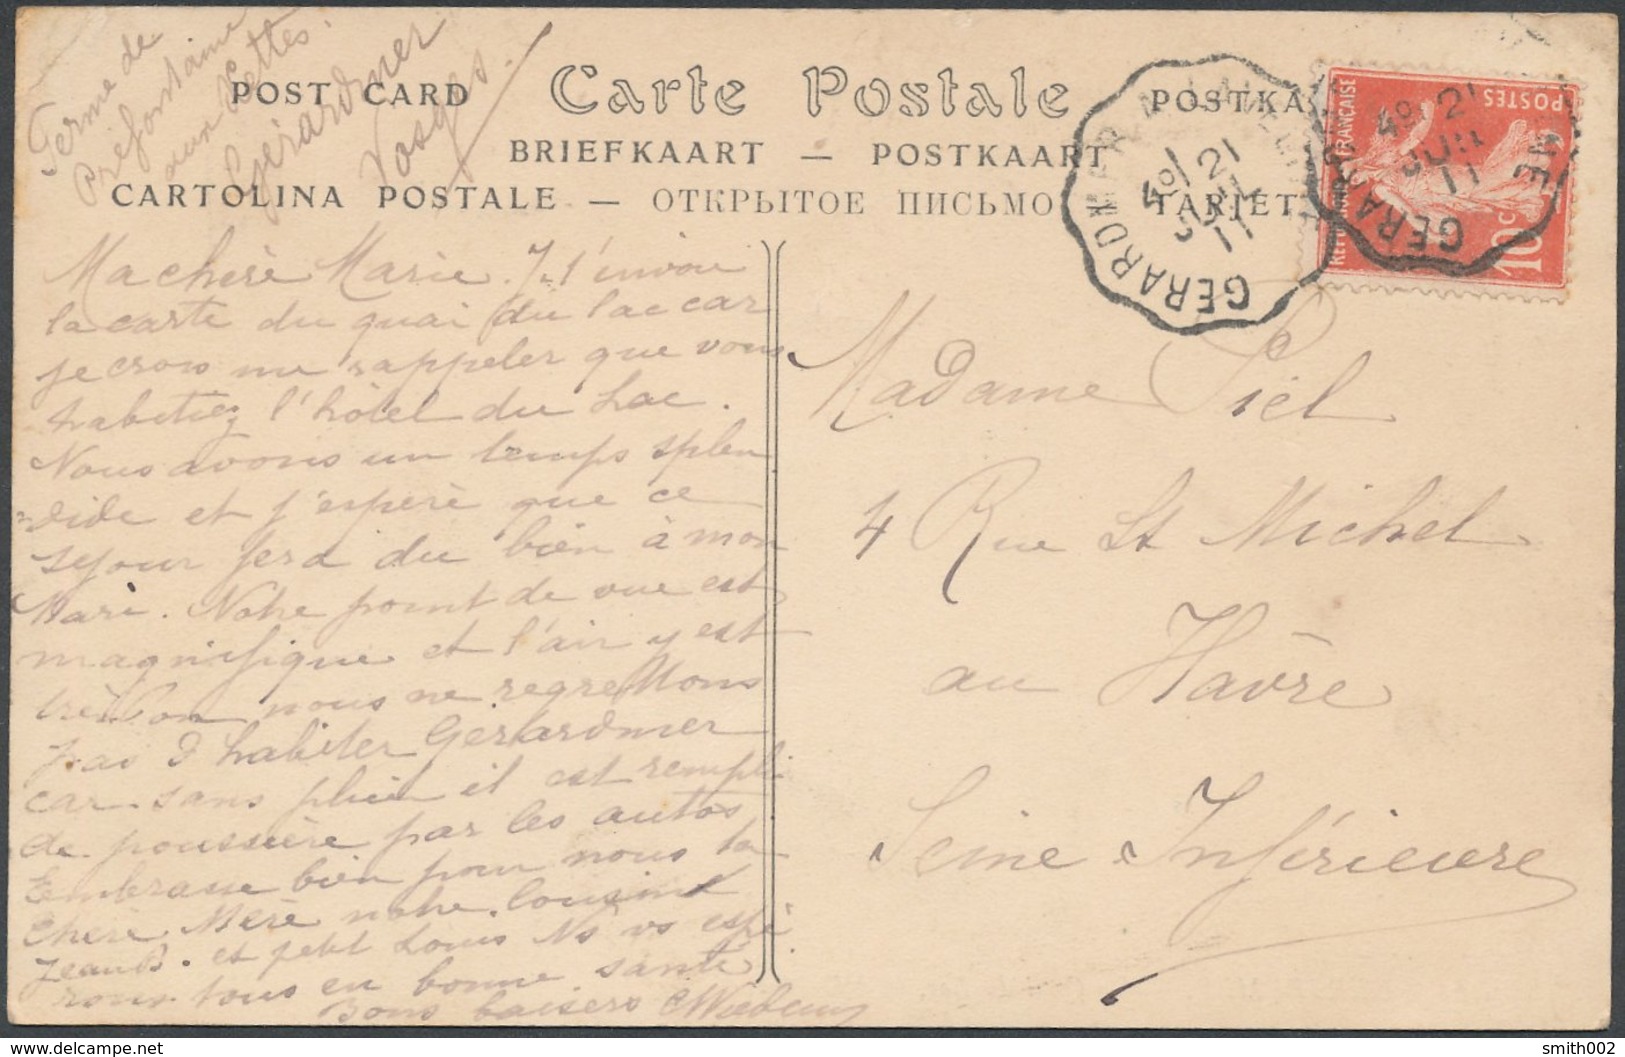 Ferme de
Préfontaine
aux Xettes.
Gérardmer
Vosges.
POST CARD Carte Postale POSTKA
BRIEFKAART — POSTKAART
CARTOLINA POSTALE — ОТКРЫТОЕ ПИСЬМО TARJET
GERARDMER
GERARDMER
4º 21
JUIL
11
4º 21
JUIL
11
REPUBLIQUE FRANÇAISE
POSTES
10c
Ma chère Marie. Je t'envoie
la carte du quai du lac car
je crois me rappeler que vous
habitiez l'hôtel du Lac.
Nous avons un temps splen
dide et j'espère que ce
séjour fera du bien à mon
Mari. Notre point de vue est
magnifique et l'air y est
très bon nous ne regrettons
pas d'habiter Gérardmer
car sans pluie il est rempli
de poussière par les autos
Embrasse bien pour nous ta
chère Mère notre cousine
Jean B. et petit Louis Ns vs espé
rons tous en bonne santé
Bons baisers
Madame Piel
4 Rue St Michel
au Havre
Seine-Inférieure
smith002